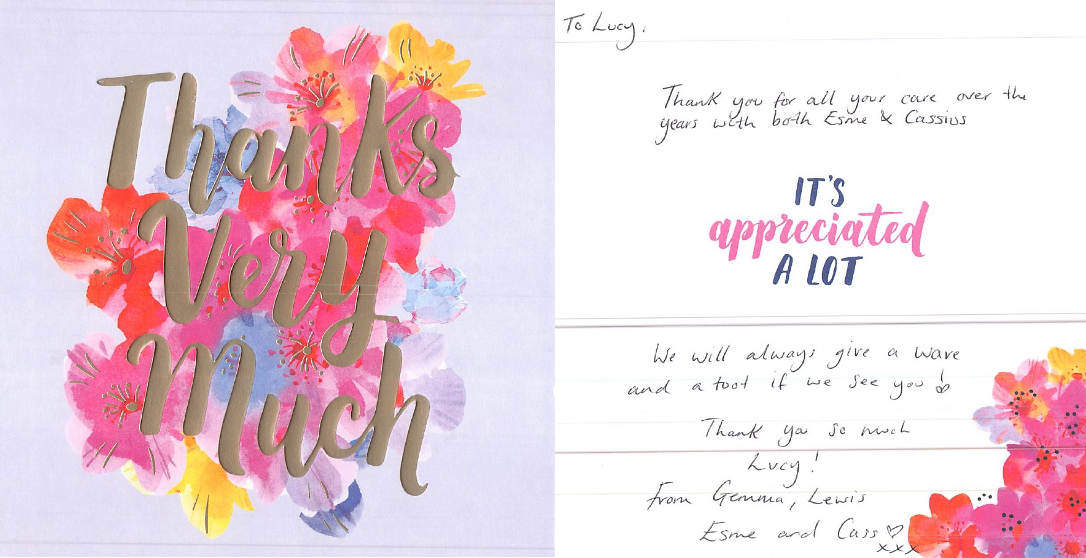 Thanks
Very
Much
To Lucy,
Thank you for all your care over the
years with both Esme & Cassius
IT'S
appreciated
A LOT
We will always give a wave
and a toot if we see you!
Thank you so much
Lucy!
From Gemma, Lewis
Esme and Cass ♡
xxx